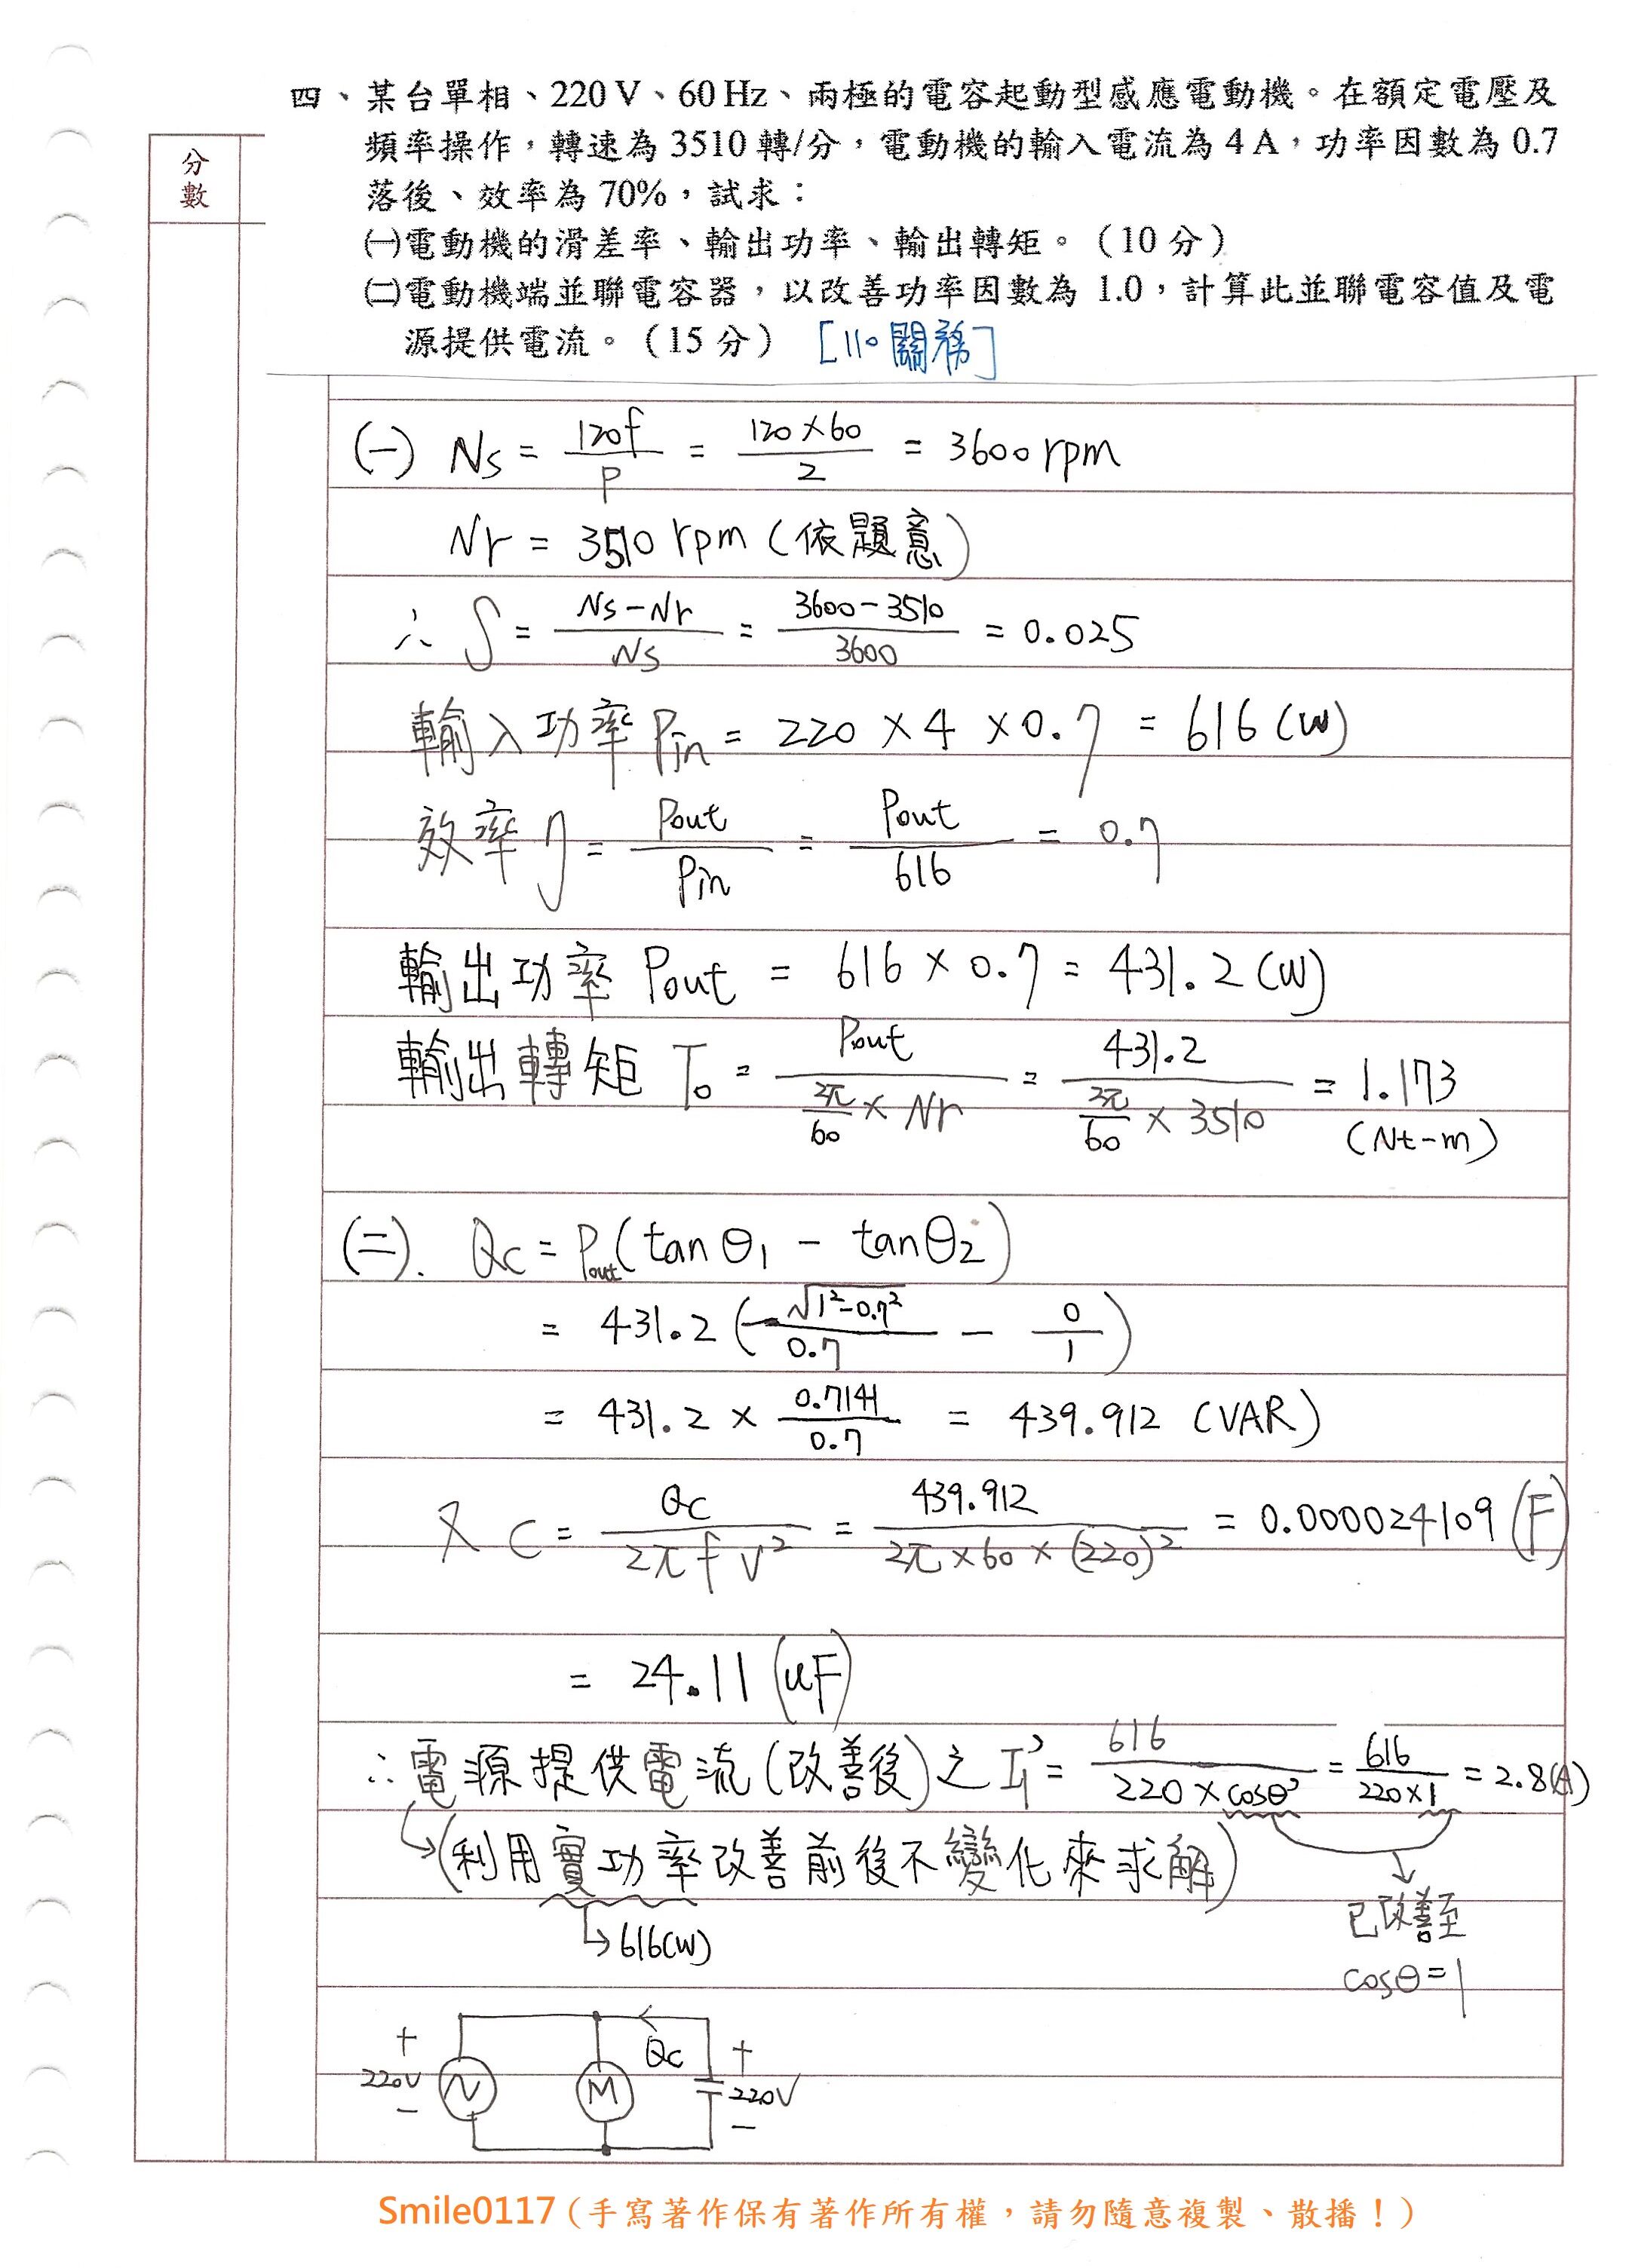 四、某台單相、220 V、60 Hz、兩極的電容起動型感應電動機。在額定電壓及
頻率操作，轉速為 3510 轉/分，電動機的輸入電流為 4 A，功率因數為 0.7
落後、效率為 70%，試求：
㈠電動機的滑差率、輸出功率、輸出轉矩。（10 分）
㈡電動機端並聯電容器，以改善功率因數為 1.0，計算此並聯電容值及電
源提供電流。（15 分） [110關務]
分數
(一) Ns = 120f / P = 120×60 / 2 = 3600 rpm
Nr = 3510 rpm (依題意)
∴ S = Ns-Nr / Ns = 3600-3510 / 3600 = 0.025
輸入功率 Pin = 220 × 4 × 0.7 = 616 (W)
效率 η = Pout / Pin = Pout / 616 = 0.7
輸出功率 Pout = 616 × 0.7 = 431.2 (W)
輸出轉矩 To = Pout / (2π/60 × Nr) = 431.2 / (2π/60 × 3510) = 1.173 (Nt-m)
(二). Qc = Pout (tanθ1 - tanθ2)
= 431.2 (√1²-0.7² / 0.7 - 0 / 1)
= 431.2 × 0.7141 / 0.7 = 439.912 (VAR)
又 C = Qc / 2πfV² = 439.912 / 2π×60×(220)² = 0.000024109 (F)
= 24.11 (uF)
∴電源提供電流(改善後)之 I1' = 616 / 220×cosθ' = 616 / 220×1 = 2.8(A)
(利用實功率改善前後不變化來求解)
616(W)
已改善至
cosθ=1
+ 220V -
M
Qc
+ 220V -
Smile0117 (手寫著作保有著作所有權，請勿隨意複製、散播！)